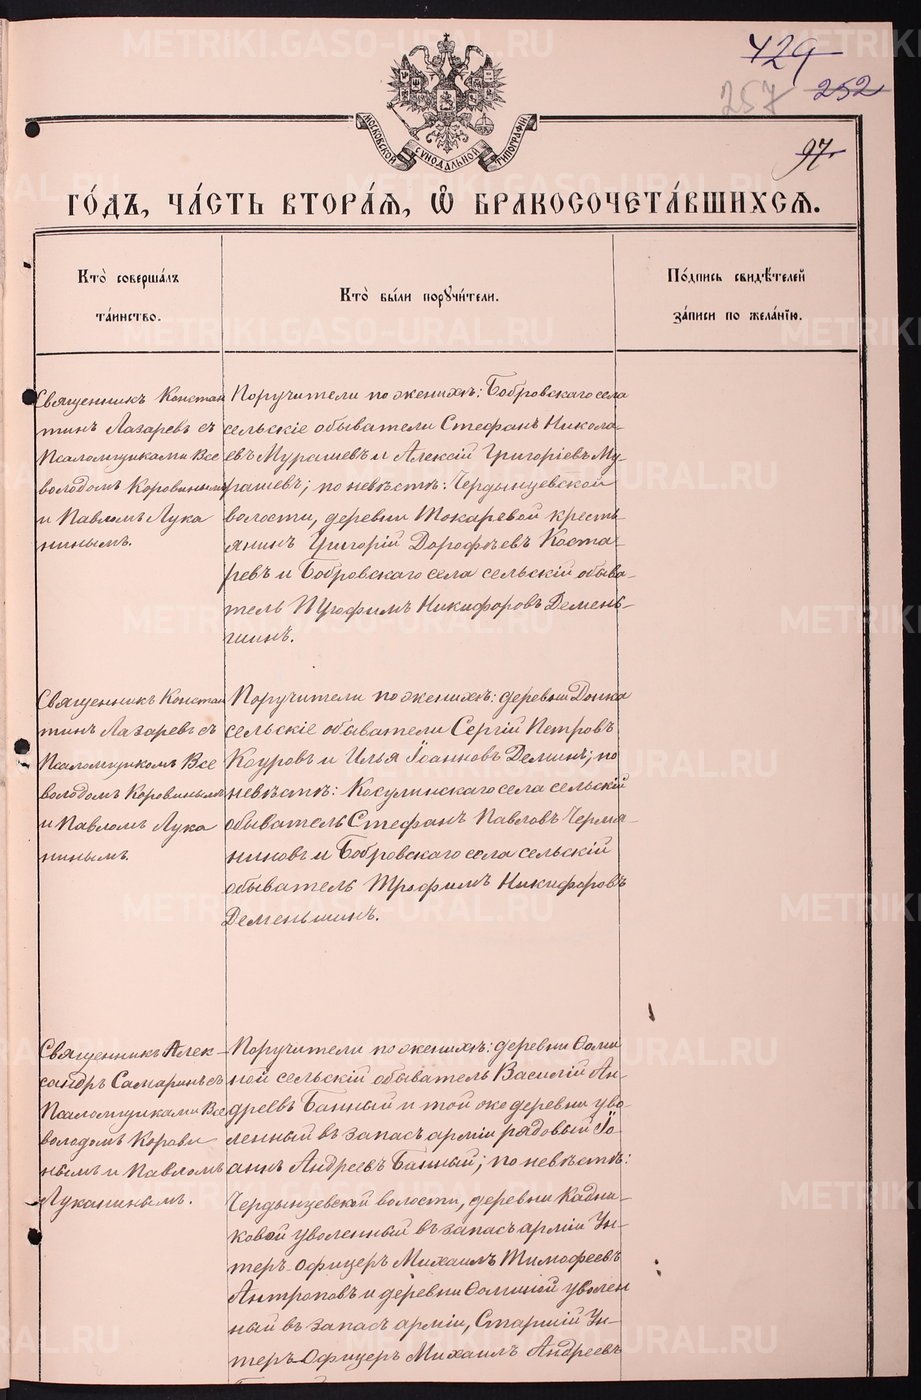 429
257 252
МОСКОВСКОЙ СѴНОДАЛЬНОЙ ТИПОГРАФІИ
97.
ГО́ДЪ, ЧА́СТЬ ВТОРА́Ѧ, Ѡ҆ БРАКОСОЧЕТА́ВШИХСѦ.
Кто̀ соверша́лъ
та́инство.
Кто̀ бы́ли порꙋчи́тели.
По́дпись свидѣ́телей
за́писи по жела́нїю.
Священникъ Констан
тинъ Лазаревъ съ
Псаломщиками Все
володомъ Коровинымъ
и Павломъ Лука
нинымъ.
Поручители по женихѣ: Бобровскаго села
сельскіе обыватели Стефанъ Никола-
евъ Мурашевъ и Алексій Григоріевъ Му-
рашевъ; по невѣстѣ: Чердынцевской
волости, деревни Токаревой кресть-
янинъ Григорій Дорофѣевъ Коста-
ревъ и Бобровскаго села сельскій обыва-
тель Трофимъ Никифоровъ Демень-
шинъ.
Священникъ Констан
тинъ Лазаревъ съ
Псаломщикомъ Все
володомъ Коровинымъ
и Павломъ Лука
нинымъ.
Поручители по женихѣ: деревни Донка
сельскіе обыватели Сергій Петровъ
Коуровъ и Илья Іоанновъ Деминъ; по
невѣстѣ: Косулинскаго села сельскій
обыватель Стефанъ Павловъ Чермя-
ниновъ и Бобровскаго села сельскій
обыватель Трофимъ Никифоровъ
Деменьшинъ.
Священникъ Алек-
сандръ Самаринъ съ
Псаломщиками Все
володомъ Корови
нымъ и Павломъ
Луканинымъ.
Поручители по женихѣ: деревни Фоми
ной сельскій обыватель Василій Ан-
дреевъ Банный и той же деревни уво-
ленный въ запасъ арміи рядовый Іо-
аннъ Андреевъ Банный; по невѣстѣ:
Чердынцевской волости, деревни Кадни-
ковой уволенный въ запасъ арміи Ун-
теръ-офицеръ Михаилъ Тимофеевъ
Антроповъ и деревни Фоминой уволен
ный въ запасъ арміи, Старшій Ун-
теръ-Офицеръ Михаилъ Андреевъ
METRIKI.GASO-URAL.RU